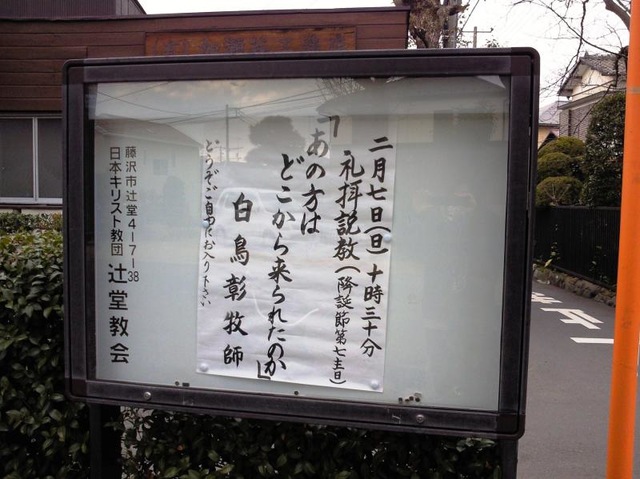 二月七日(日)十時三十分
礼拝説教(降誕節第七主日)
「あの方は
どこから来られたのか」
白鳥彰牧師
どうぞご自由にお入り下さい
藤沢市辻堂4-7-38
日本キリスト教団 辻堂教会